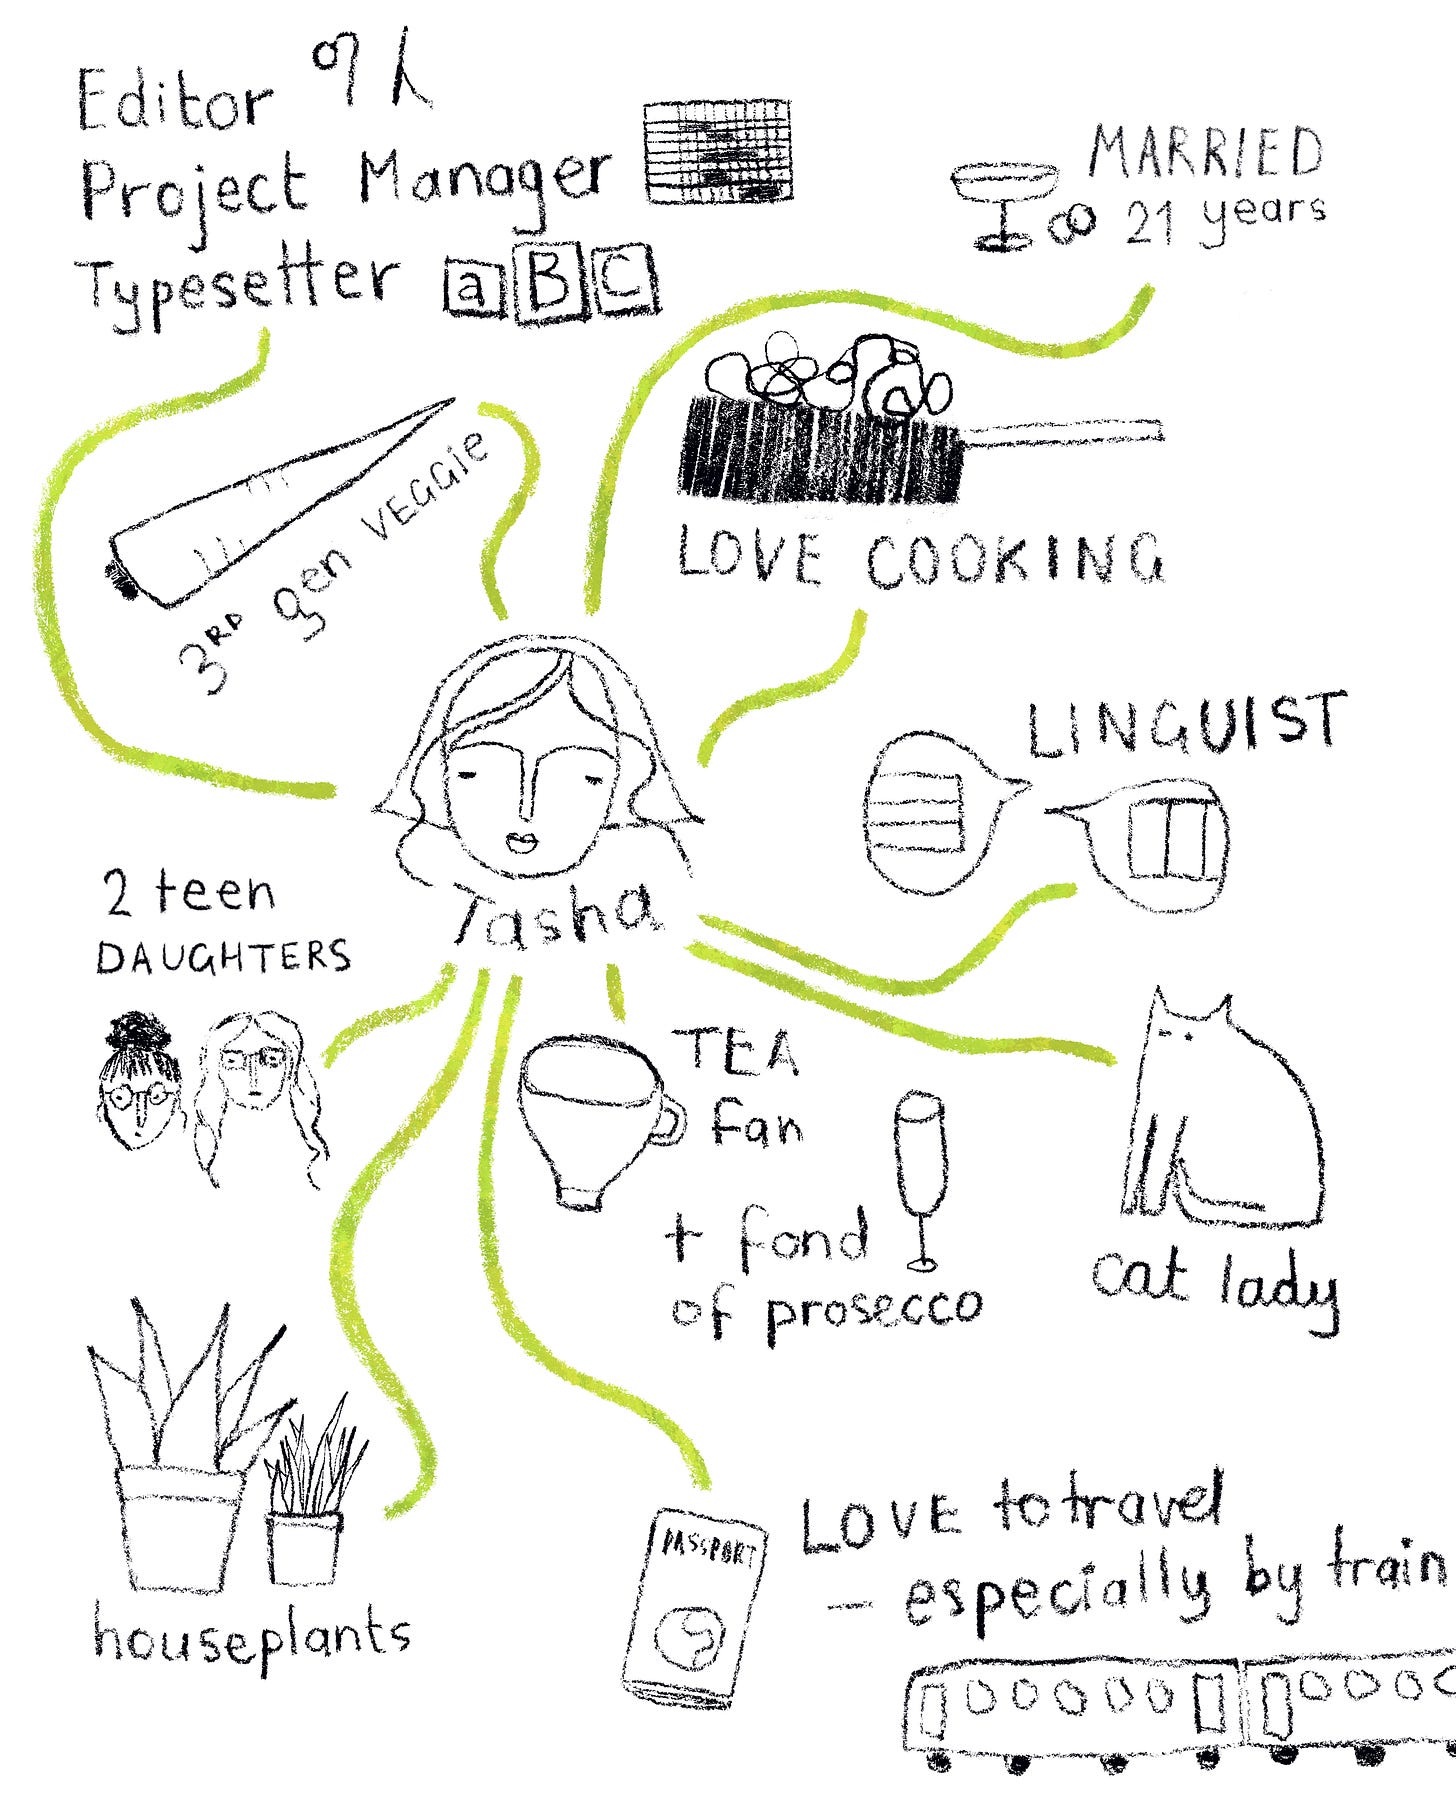 Editor
Project Manager
Typesetter
a B C
MARRIED
21 years
3RD gen VEGGIE
LOVE COOKING
LINGUIST
Tasha
2 teen
DAUGHTERS
TEA
fan
+ fond
of prosecco
cat lady
houseplants
PASSPORT
LOVE to travel
— especially by train